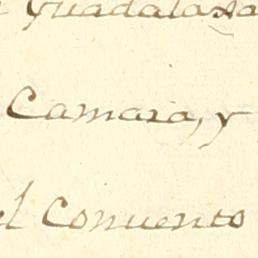 Guadalaxa
Camara, y
el Conuento